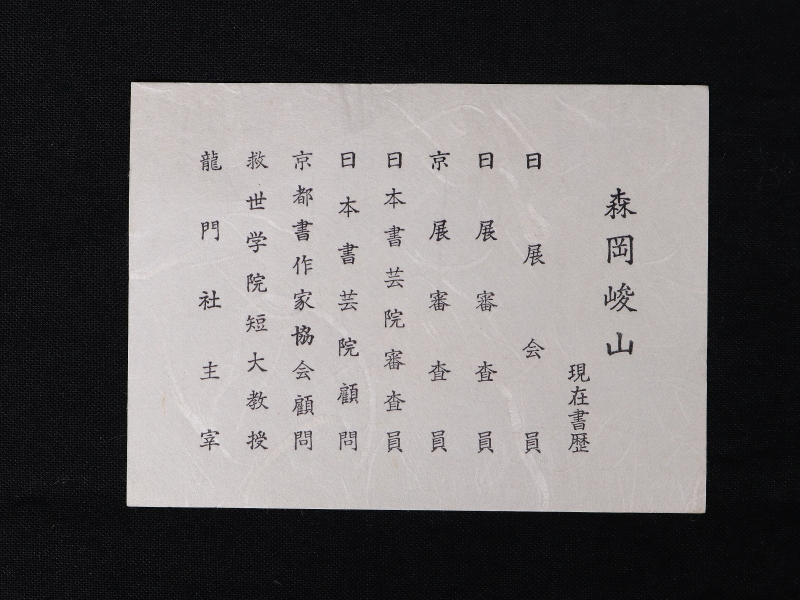 森岡峻山
現在書歴
日展会員
日展審査員
京展審査員
日本書芸院審査員
日本書芸院顧問
京都書作家協会顧問
救世学院短大教授
龍門社主宰